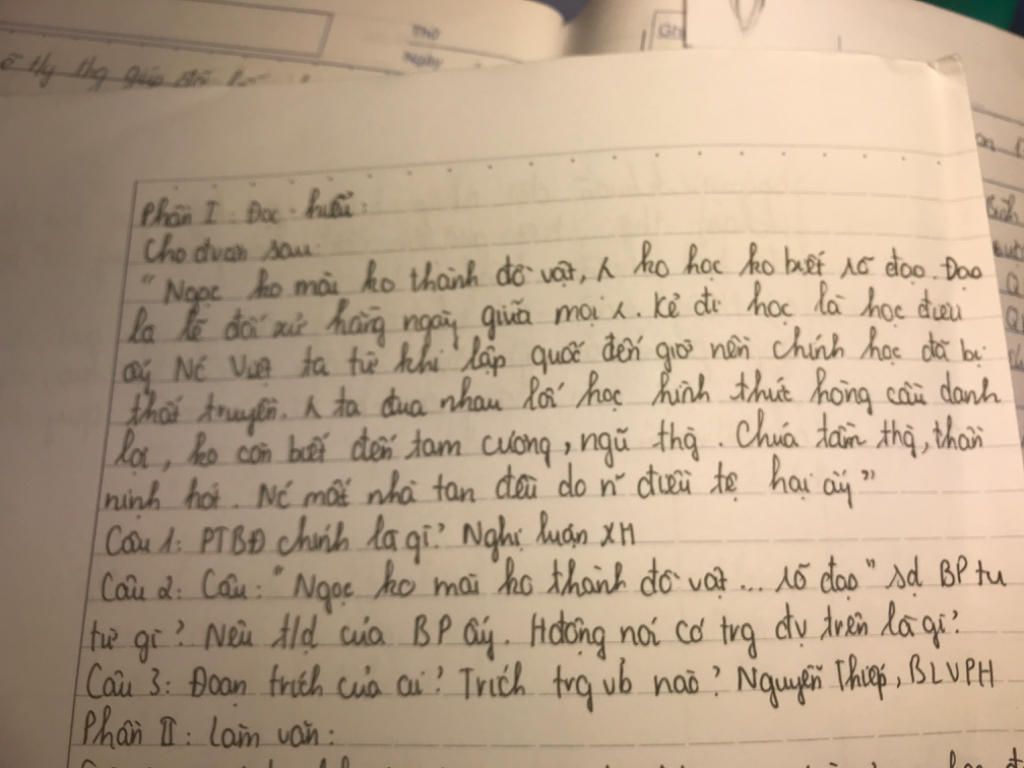 Thứ
Ngày
Gh
Phần I : Đọc - hiểu :
Cho đvan sau:
"Ngọc ko mài ko thành đồ vật, λ ko học ko biết rõ đạo. Đạo
là lẽ đối xử hằng ngày giữa mọi λ. Kẻ đi học là học điều
ấy. Nc Việt ta từ khi lập quốc đến giờ nền chính học đã bị
thất truyền. λ ta đua nhau lối học hình thức hòng cầu danh
lợi, ko còn biết đến tam cương, ngũ thg. Chúa tầm thg, thần
nịnh hót. Nc mất nhà tan đều do n~ điều tệ hại ấy"
Câu 1: PTBĐ chính là gì? Nghị luận XH
Câu 2: Câu: "Ngọc ko mài ko thành đồ vật... rõ đạo" sd BP tu
từ gì? Nêu t/d của BP ấy. Hđộng nói có trg đv trên là gì?
Câu 3: Đoạn trích của ai? Trích trg vb nào? Nguyễn Thiếp, BLVPH
Phần II : Làm văn: